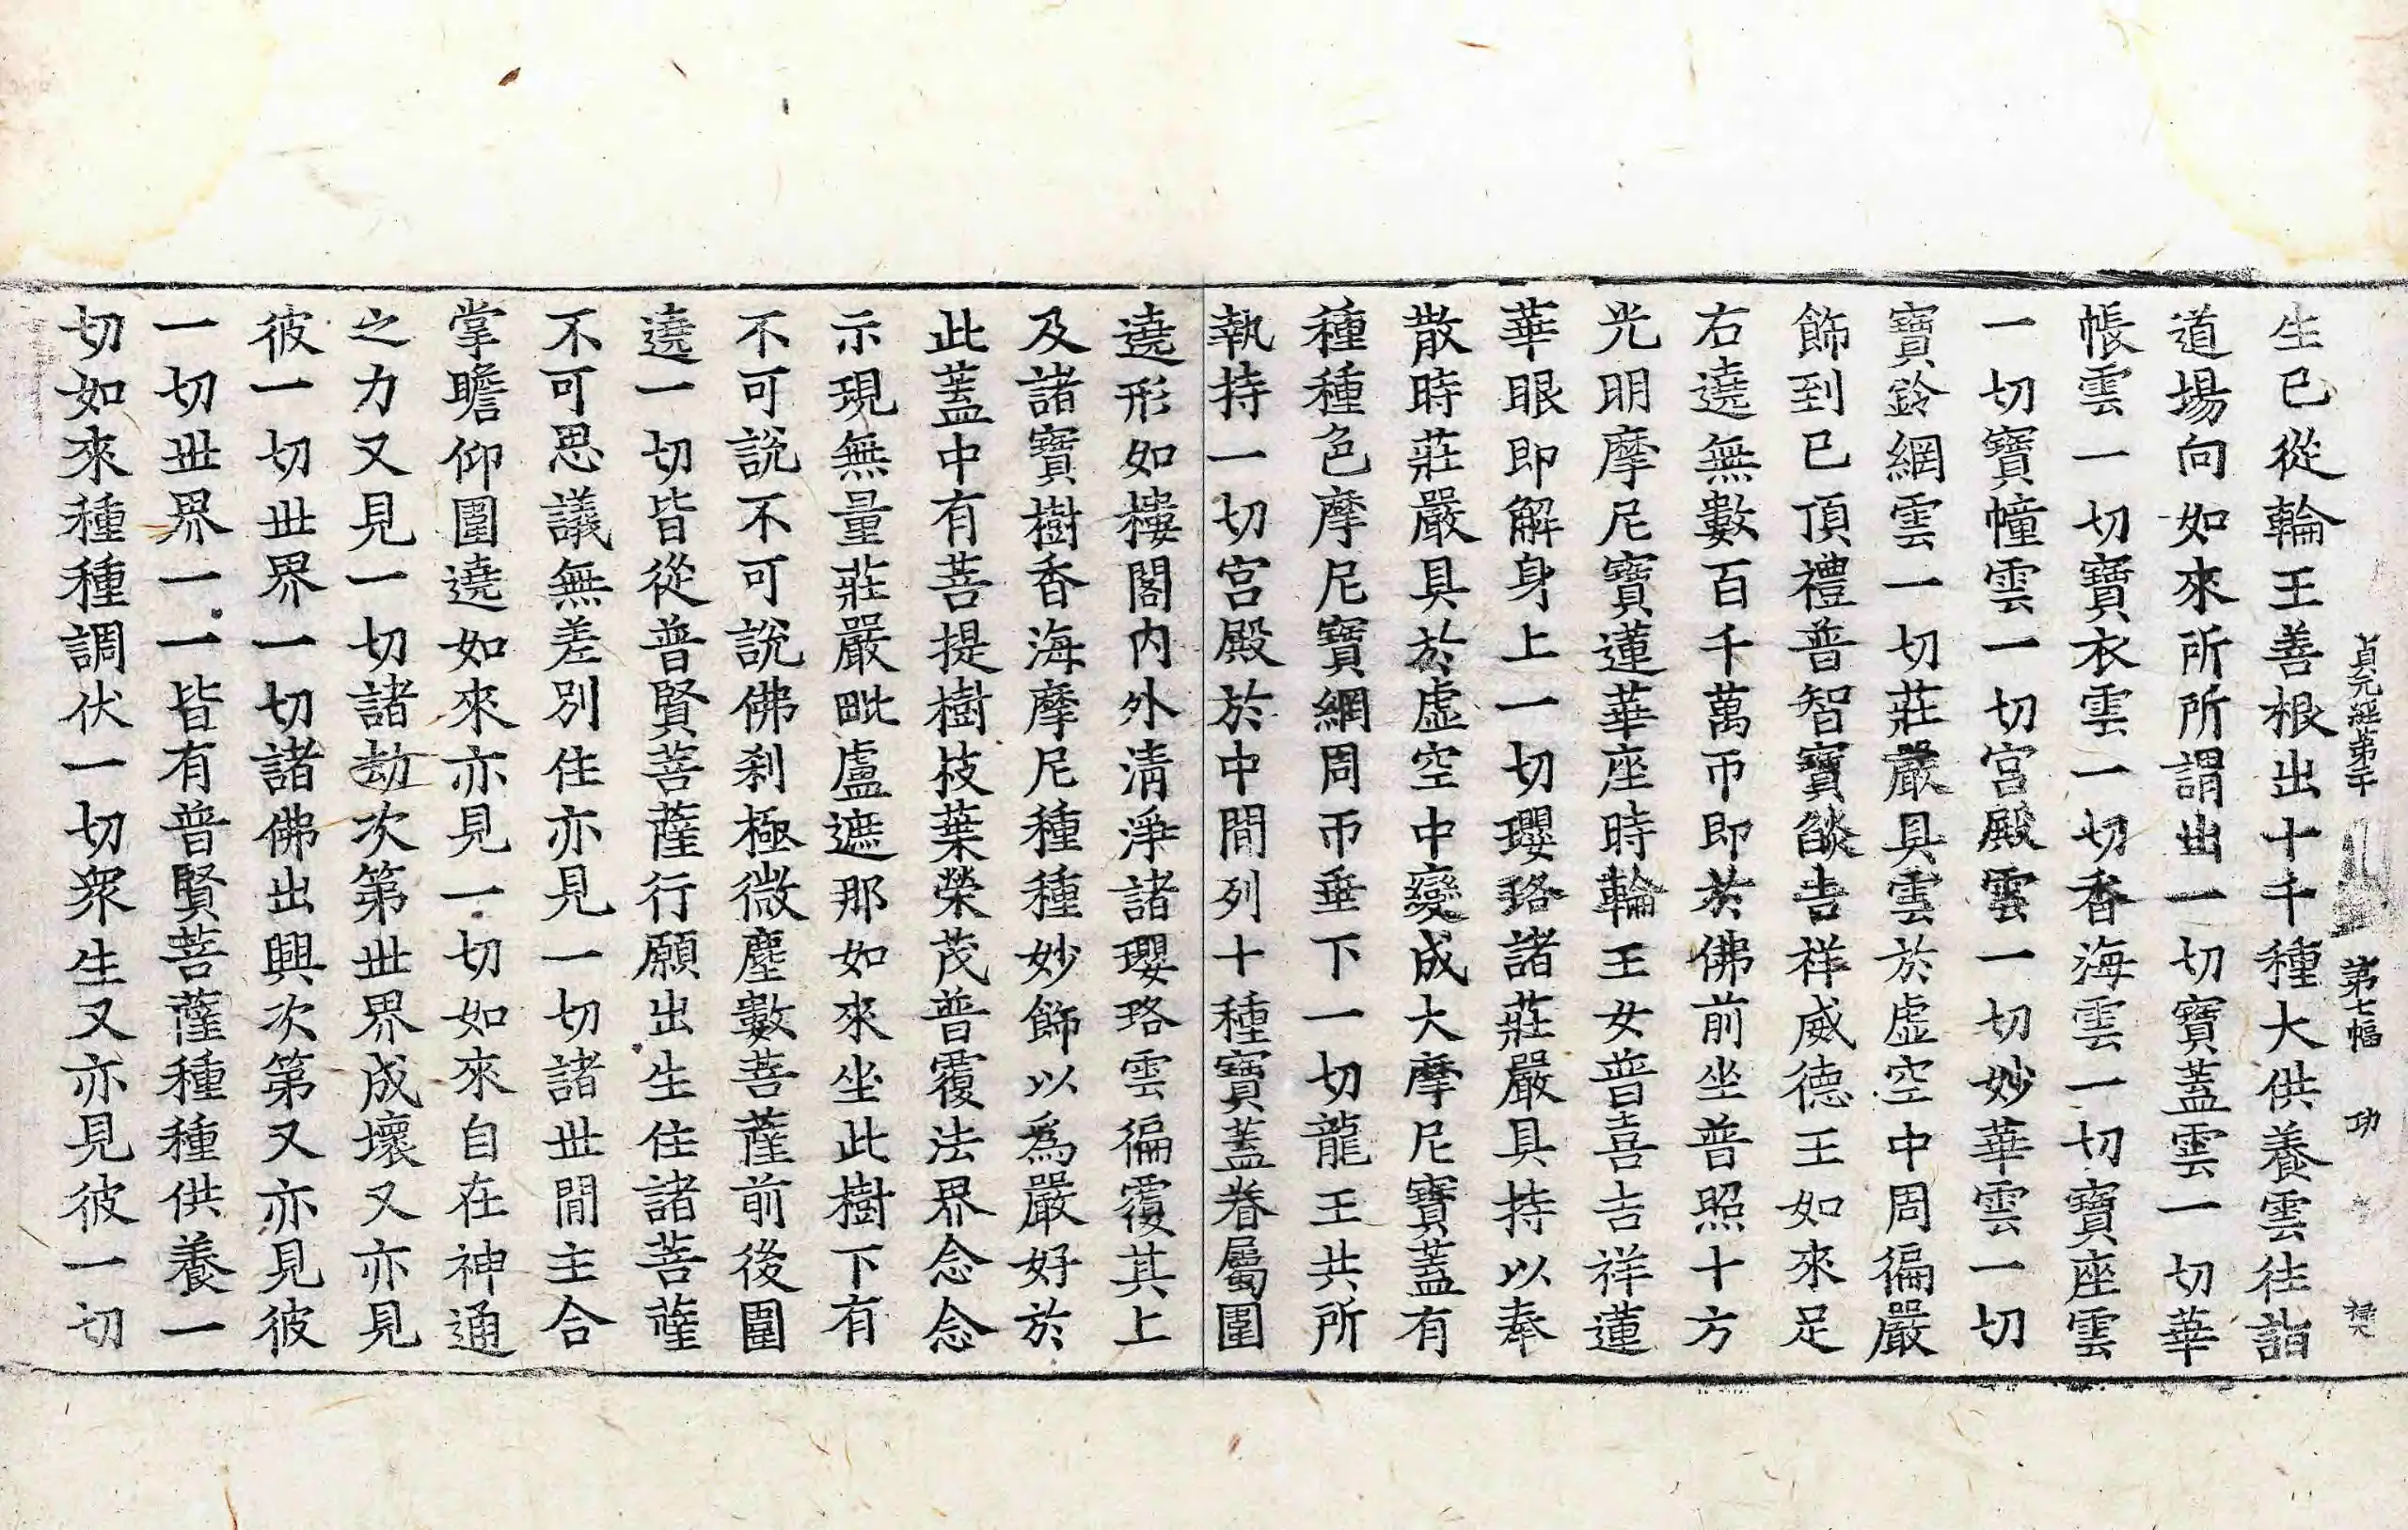 貞元經第二十 第七幅 功
生已從輪王善根出十千種大供養雲往詣
道場向如來所所謂出一切寶蓋雲一切華
帳雲一切寶衣雲一切香海雲一切寶座雲
一切寶幢雲一切宮殿雲一切妙華雲一切
寶鈴網雲一切莊嚴具雲於虛空中周徧嚴
飾到已頂禮普智寶𦦨吉祥威德王如來足
右遶無數百千萬帀即於佛前坐普照十方
光明摩尼寶蓮華座時輪王女普喜吉祥蓮
華眼即解身上一切瓔珞諸莊嚴具持以奉
散時莊嚴具於虛空中變成大摩尼寶蓋有
種種色摩尼寶網周帀垂下一切龍王共所
執持一切宮殿於中間列十種寶蓋眷屬圍
遶形如樓閣內外清淨諸瓔珞雲徧覆其上
及諸寶樹香海摩尼種種妙飾以為嚴好於
此蓋中有菩提樹枝葉榮茂普覆法界念念
示現無量莊嚴毗盧遮那如來坐此樹下有
不可說不可說佛剎極微塵數菩薩前後圍
遶一切皆從普賢菩薩行願出生住諸菩薩
不可思議無差別住亦見一切諸世間主合
掌瞻仰圍遶如來亦見一切如來自在神通
之力又見一切諸劫次第世界成壞又亦見
彼一切世界一切諸佛出興次第又亦見彼
一切世界一一皆有普賢菩薩種種供養一
切如來種種調伏一切衆生又亦見彼一切